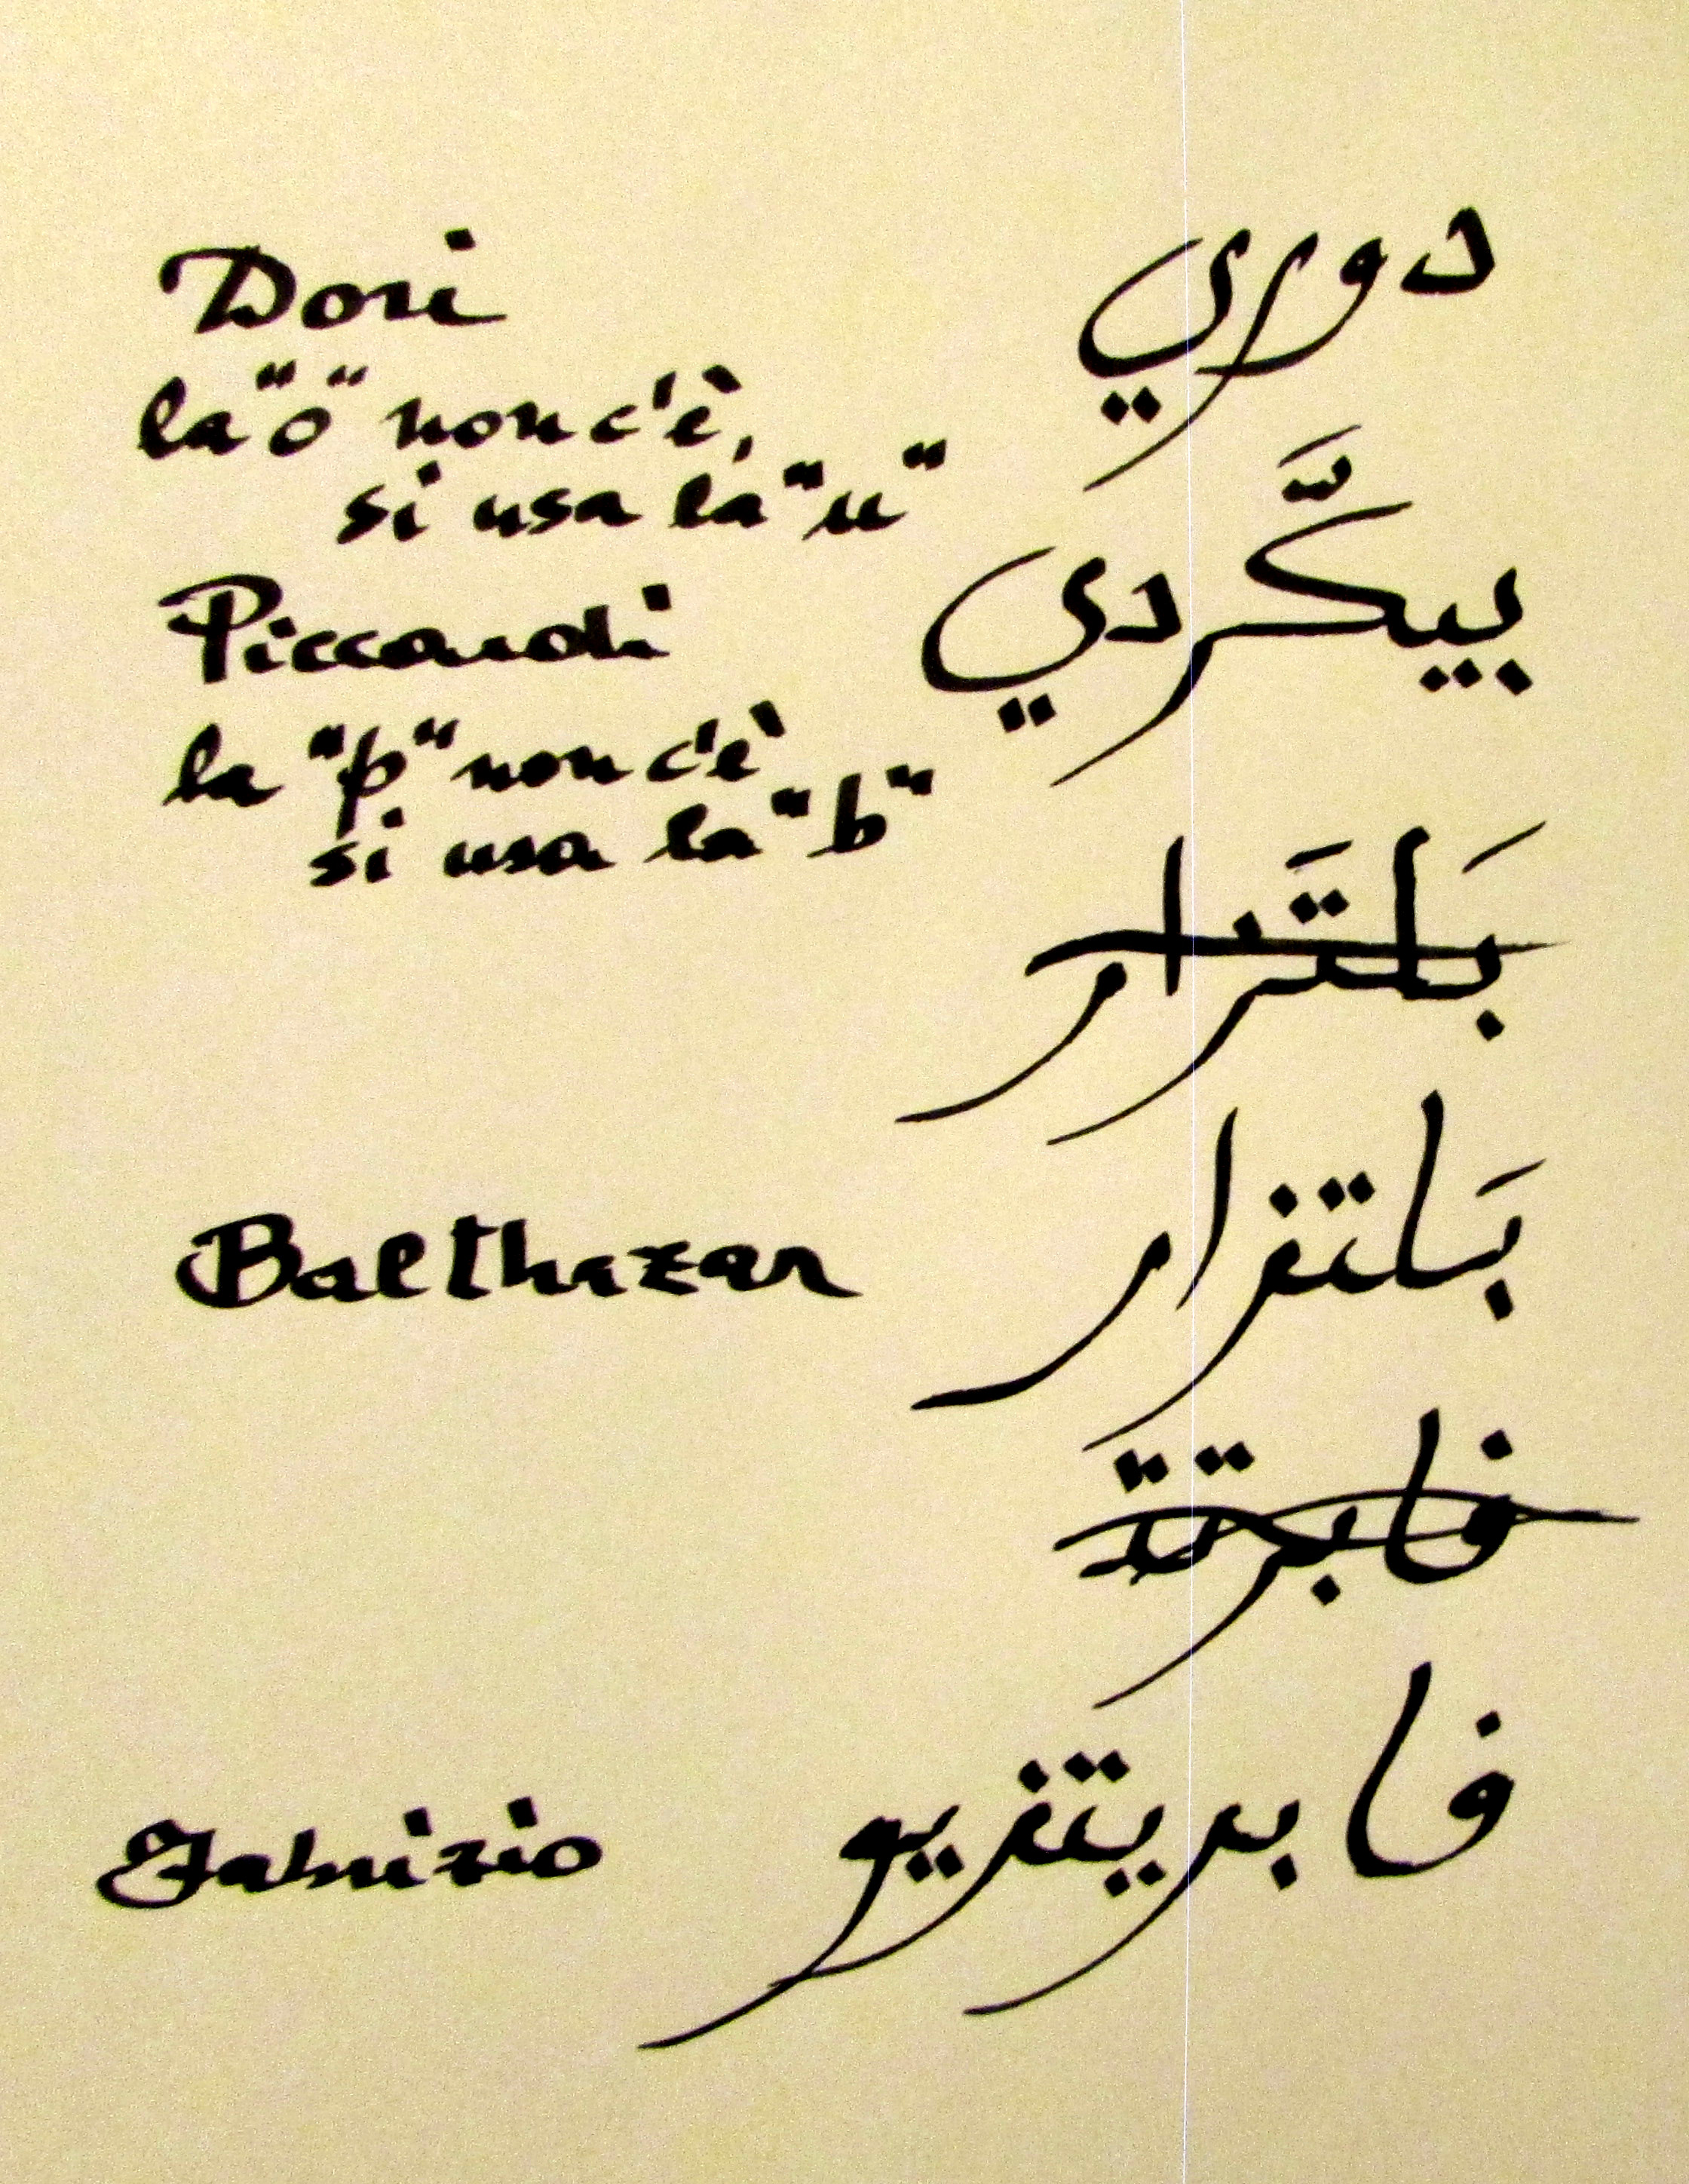 Dori دوري
la "o" non c'è,
si usa la "u"
Piccardi بيكَّردي
la "p" non c'è
si usa la "b"
بَلتَزار
Balthazar بَلتزار
فابرتة
Fabrizio فابريتزيو